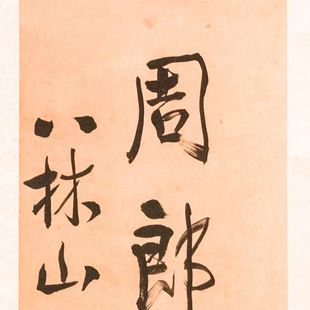 周郎
八林山